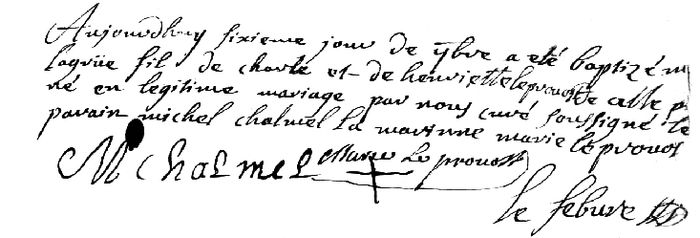 Aujourdhuy sixieme jour de 9bre a eté baptizé m
lagrüe fil de charle et de henriette leprovost de cette p
né en legitime mariage par nous curé soussigné le
parain michel chalmel la marinne marie le provos
M chalmel Marie Le provost
le febure